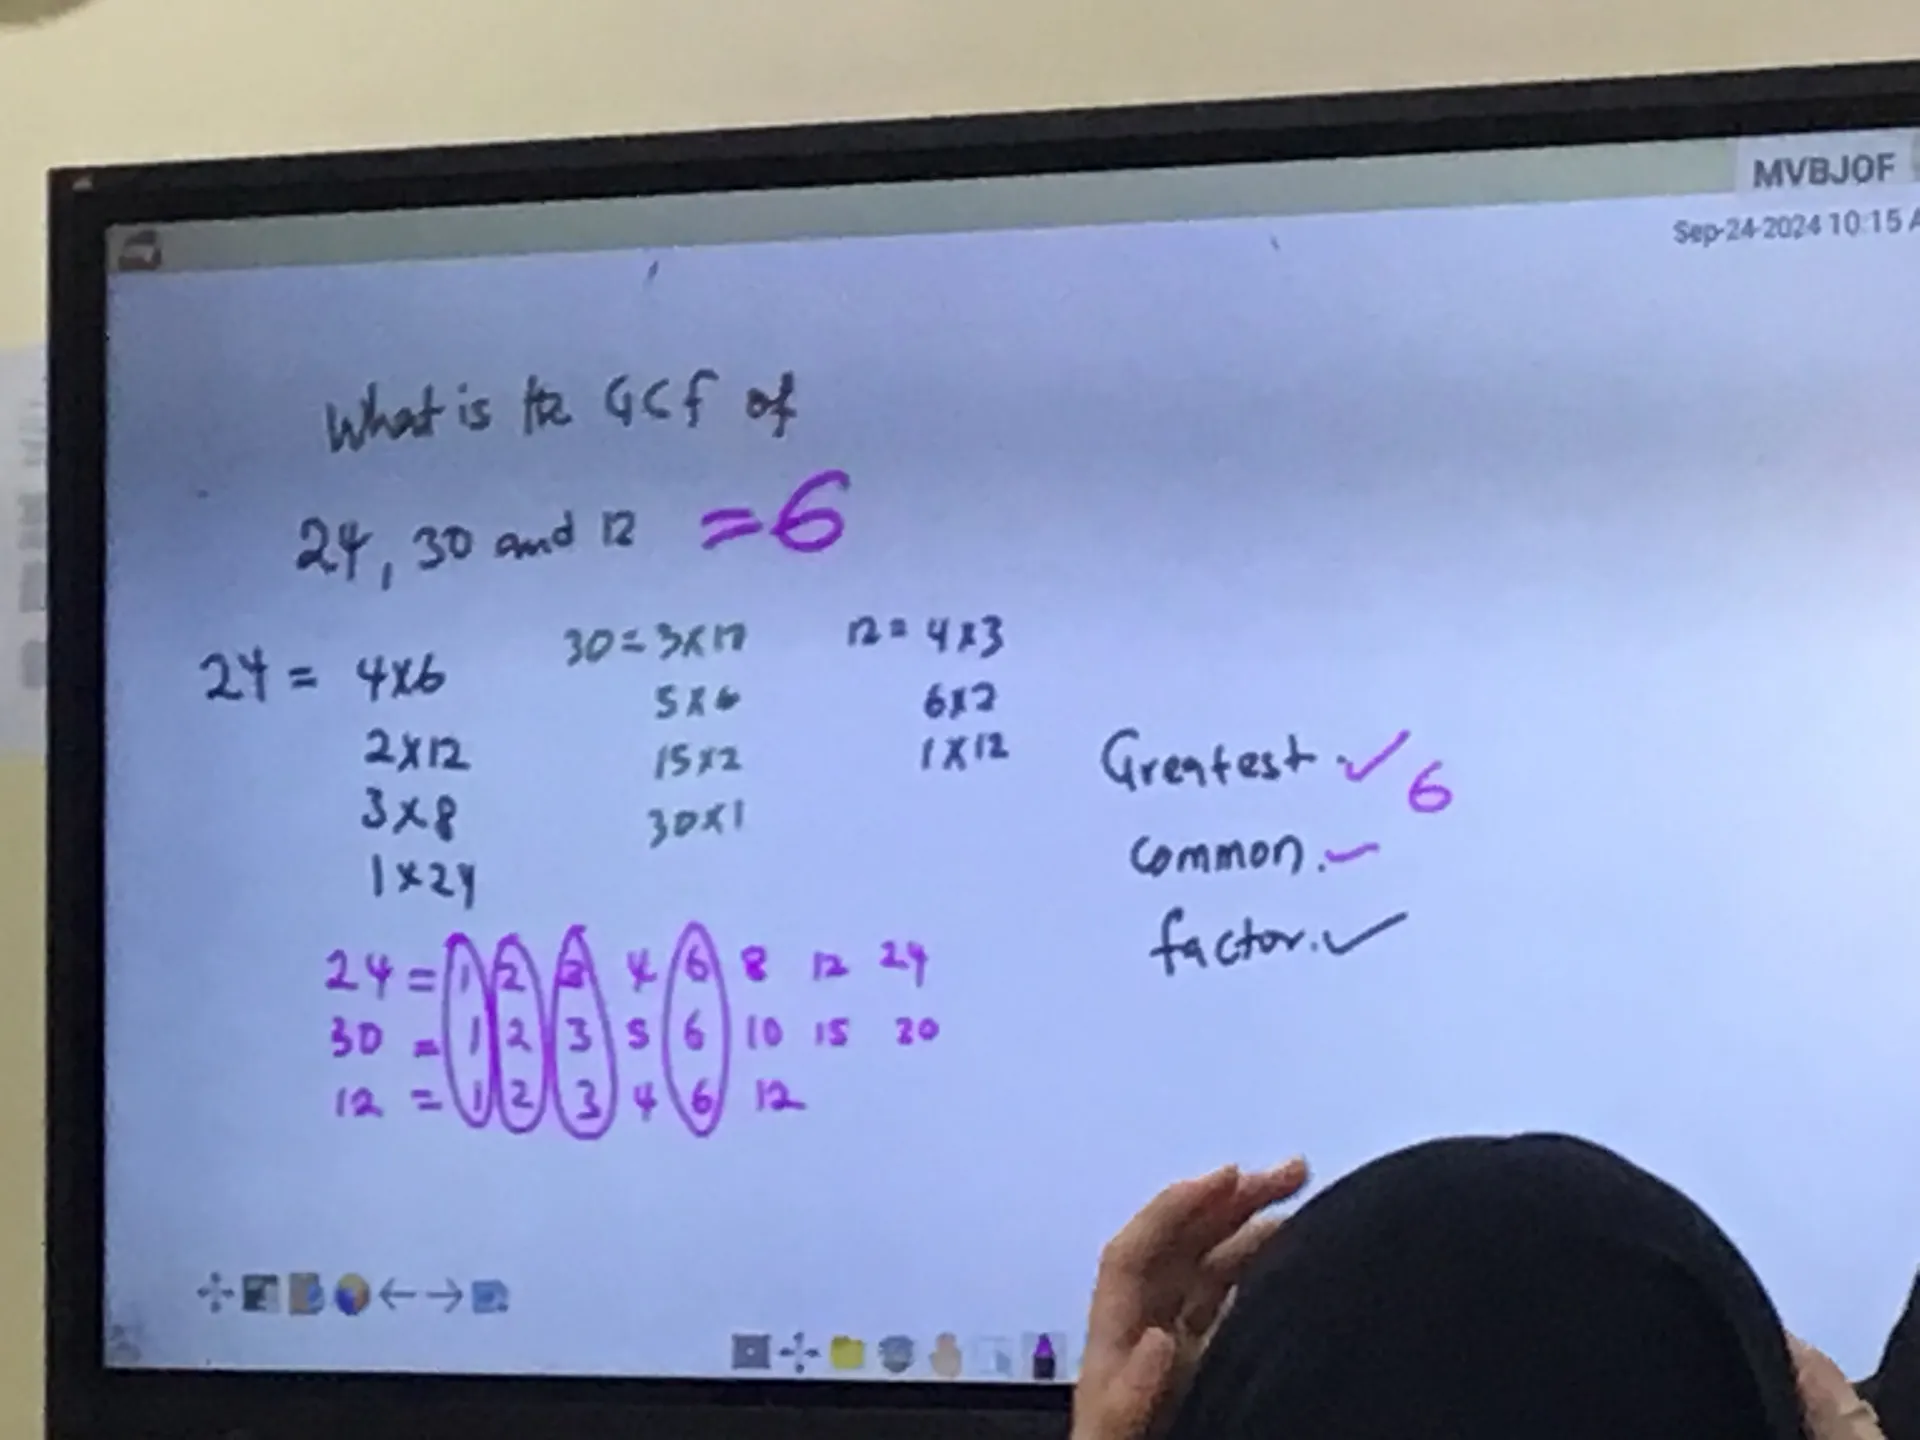 MVBJOF
Sep-24-2024 10:15 A
What is the GCf of
24, 30 and 12 = 6
24 = 4x6
2x12
3x8
1x24
30 = 3x10
5x6
15x2
30x1
12 = 4x3
6x2
1x12
Greatest. ✓ 6
common.
factor. ✓
24 = 1 2 3 4 6 8 12 24
30 = 1 2 3 5 6 10 15 30
12 = 1 2 3 4 6 12